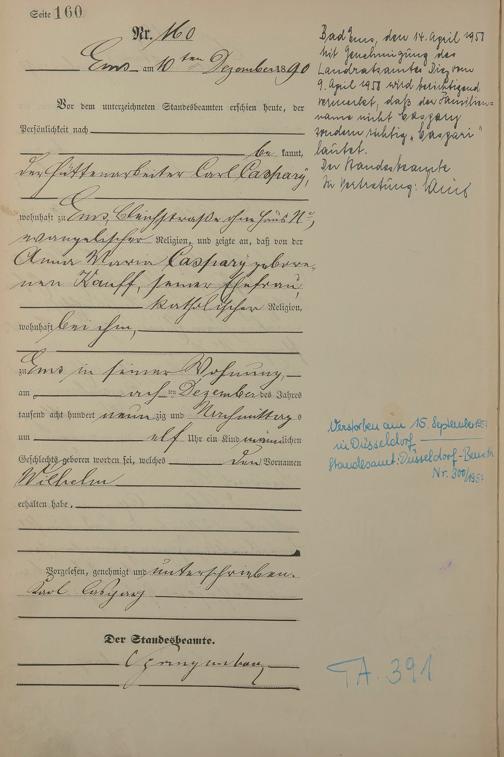 Seite 160
Nr. 160
Ems am 10 ten Dezember 1890
Vor dem unterzeichneten Standesbeamten erschien heute, der
Persönlichkeit nach
be kannt,
der Hüttenarbeiter Carl Caspary,
wohnhaft zu Ems, Bleichstraße ohne Haus No,
evangelischer Religion, und zeigte an, daß von der
Anna Maria Caspary gebore-
nen Kauff, seiner Ehefrau,
katholischer Religion,
wohnhaft bei ihm,
zu Ems in seiner Wohnung,
am ach ten Dezember des Jahres
tausend acht hundert neun zig und Nachmittags
um elf Uhr ein Kind männlichen
Geschlechts geboren worden sei, welches den Vornamen
Wilhelm
erhalten habe.
Vorgelesen, genehmigt und unterschrieben.
Karl Caspary
Der Standesbeamte.
Bad Ems, den 14. April 1950
Mit Genehmigung des
Landratsamtes Diez vom
9. April 1950 wird berichtigend
vermerkt, daß der Familien-
name nicht Caspary
sondern richtig „Caspari“
lautet.
Der Standesbeamte
In Vertretung:
Verstorben am 15. September
in Düsseldorf
Standesamt: Düsseldorf-Benrath
Nr. 300/195
TA. 391